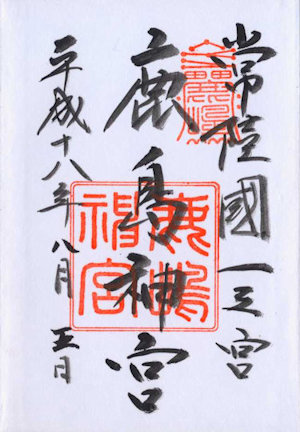 常陸國一之宮
鹿島神宮
平成十八年八月五日
鹿嶋
神宮